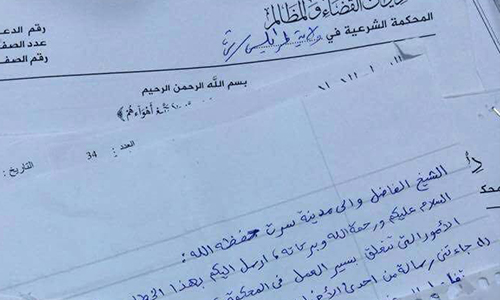 ديوان القضاء والمظالم
المحكمة الشرعية في ولاية طرابلس
رقم الدع
عدد الصف
رقم الصف
بسم الله الرحمن الرحيم
أهواءهم﴾
العدد : 34
التاريخ :
الشيخ الفاضل والي مدينة سرت حفظه الله :
السلام عليكم ورحمة الله وبركاته، ارسل اليكم بهذا
الأمور التي تتعلق بسير العمل في المحكمة
جاءتني رسالة من احدى
محك